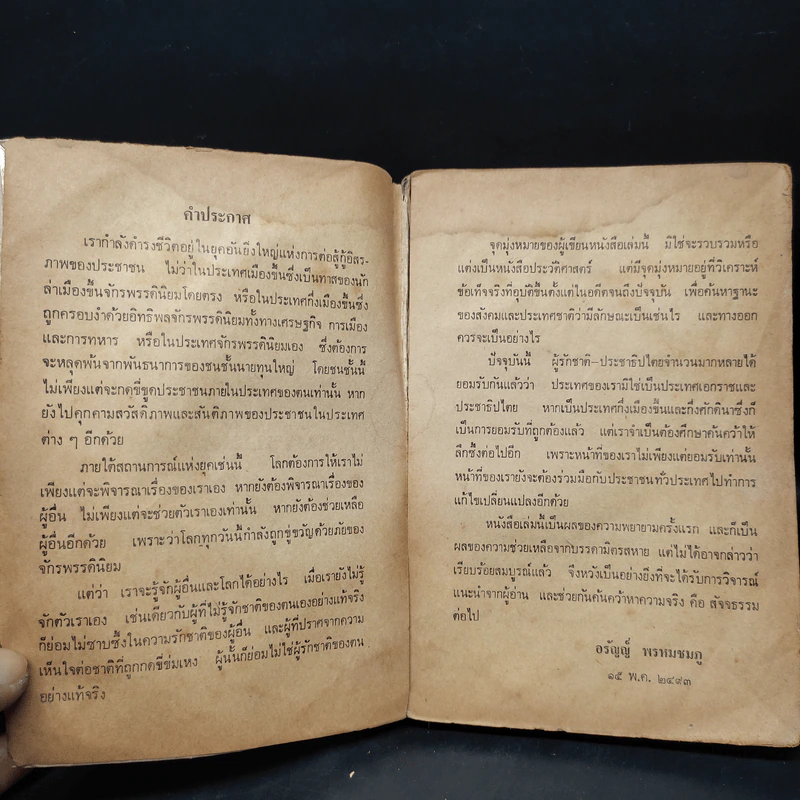 คำประกาศ
เรากำลังดำรงชีวิตอยู่ในยุคอันยิ่งใหญ่แห่งการต่อสู้กู้อิสร-
ภาพของประชาชน ไม่ว่าในประเทศเมืองขึ้นซึ่งเป็นทาสของนัก
ล่าเมืองขึ้นจักรพรรดินิยมโดยตรง หรือในประเทศกึ่งเมืองขึ้นซึ่ง
ถูกครอบงำด้วยอิทธิพลจักรพรรดินิยมทั้งทางเศรษฐกิจ การเมือง
และการทหาร หรือในประเทศจักรพรรดินิยมเอง ซึ่งต้องการ
จะหลุดพ้นจากพันธนาการของชนชั้นนายทุนใหญ่ โดยชนชั้นนี้
ไม่เพียงแต่จะกดขี่ขูดประชาชนภายในประเทศของตนเท่านั้น หาก
ยังไปคุกคามสวัสดิภาพและสันติภาพของประชาชนในประเทศ
ต่าง ๆ อีกด้วย
ภายใต้สถานการณ์แห่งยุคเช่นนี้ โลกต้องการให้เราไม่
เพียงแต่จะพิจารณาเรื่องของเราเอง หากยังต้องพิจารณาเรื่องของ
ผู้อื่น ไม่เพียงแต่จะช่วยตัวเราเองเท่านั้น หากยังต้องช่วยเหลือ
ผู้อื่นอีกด้วย เพราะว่าโลกทุกวันนี้กำลังถูกขู่ขวัญด้วยภัยของ
จักรพรรดินิยม
แต่ว่า เราจะรู้จักผู้อื่นและโลกได้อย่างไร เมื่อเรายังไม่รู้
จักตัวเราเอง เช่นเดียวกับผู้ที่ไม่รู้จักชาติของตนเองอย่างแท้จริง
ก็ย่อมไม่ซาบซึ้งในความรักชาติของผู้อื่น และผู้ที่ปราศจากความ
เห็นใจต่อชาติที่ถูกกดขี่ข่มเหง ผู้นั้นก็ย่อมไม่ใช่ผู้รักชาติของตน
อย่างแท้จริง
จุดมุ่งหมายของผู้เขียนหนังสือเล่มนี้ มิใช่จะรวบรวมหรือ
แต่งเป็นหนังสือประวัติศาสตร์ แต่มีจุดมุ่งหมายอยู่ที่วิเคราะห์
ข้อเท็จจริงที่อุบัติขึ้นตั้งแต่ในอดีตจนถึงปัจจุบัน เพื่อค้นหาฐานะ
ของสังคมและประเทศชาติว่ามีลักษณะเป็นเช่นไร และทางออก
ควรจะเป็นอย่างไร
ปัจจุบันนี้ ผู้รักชาติ-ประชาธิปไตยจำนวนมากหลายได้
ยอมรับกันแล้วว่า ประเทศของเรามิใช่เป็นประเทศเอกราชและ
ประชาธิปไตย หากเป็นประเทศกึ่งเมืองขึ้นและกึ่งศักดินาซึ่งก็
เป็นการยอมรับที่ถูกต้องแล้ว แต่เราจำเป็นต้องศึกษาค้นคว้าให้
ลึกซึ้งต่อไปอีก เพราะหน้าที่ของเราไม่เพียงแต่ยอมรับเท่านั้น
หน้าที่ของเรายังจะต้องร่วมมือกับประชาชนทั่วประเทศไปทำการ
แก้ไขเปลี่ยนแปลงอีกด้วย
หนังสือเล่มนี้เป็นผลของความพยายามครั้งแรก และก็เป็น
ผลของความช่วยเหลือจากบรรดามิตรสหาย แต่ไม่ได้อาจกล่าวว่า
เรียบร้อยสมบูรณ์แล้ว จึงหวังเป็นอย่างยิ่งที่จะได้รับการวิจารณ์
แนะนำจากผู้อ่าน และช่วยกันค้นคว้าหาความจริง คือ สัจจธรรม
ต่อไป
อรัญญ์ พรหมชมภู
๑๕ พ.ค. ๒๔๙๓